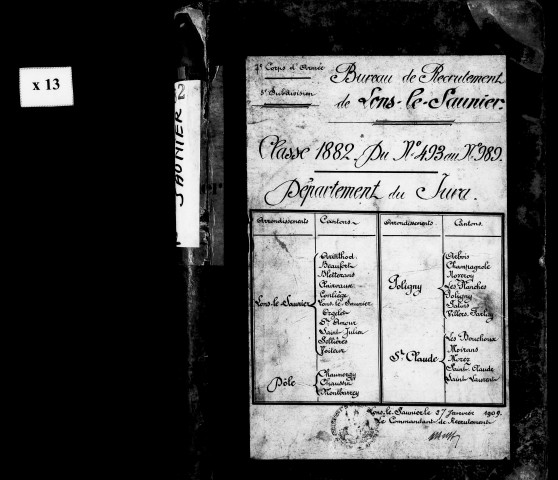 x 13
SAUNIER
7e Corps d'Armée
Bureau de Recrutement
8e Subdivision
de Lons-le-Saunier.
Classe 1882. Du No 493 au No 989.
Département du Jura.
Arrondissements Cantons Arrondissements Cantons.
Lons-le-Saunier
Arinthod
Beaufort
Bletterans
Clairvaux
Conliège
Lons-le-Saunier
Orgelet
St Amour
Saint Julien
Sellières
Voiteur
Dôle
Chaumergy
Chaussin
Montbarrey
Poligny
Arbois
Champagnole
Nozeroy
Les Planches
Poligny
Salins
Villers Farlay
St Claude
Les Bouchoux
Moirans
Morez
Saint Claude
Saint Laurent
Lons-le-Saunier le 27 Janvier 1909.
Le Commandant de Recrutement